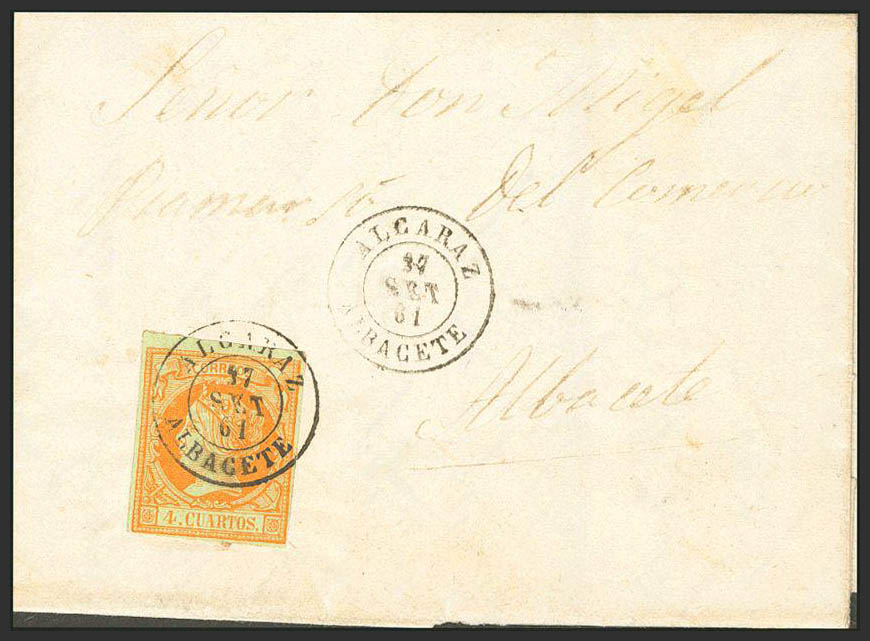 Señor Don Migel
del Comercio
ALCARAZ
SET
61
ALBACETE
ALCARAZ
17
SET
61
ALBACETE
CORREOS
4. CUARTOS.
Albacete